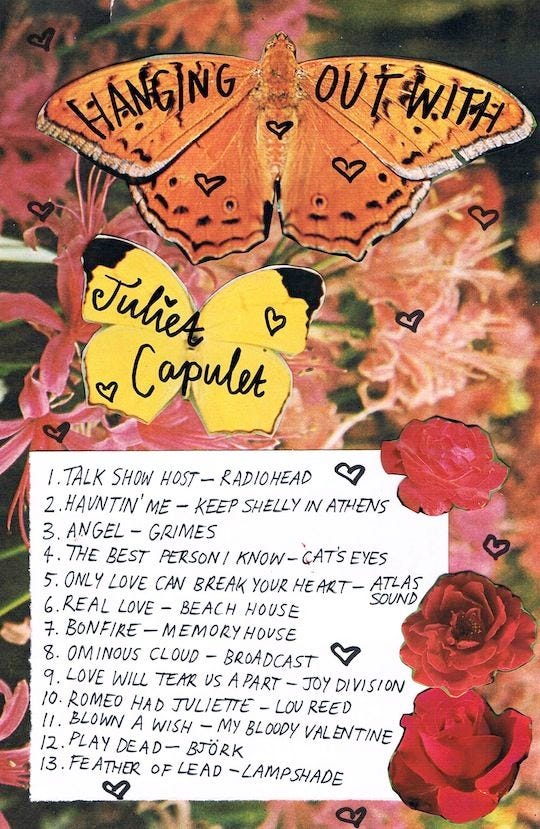 HANGING OUT WITH
Juliet
Capulet
1. TALK SHOW HOST — RADIOHEAD
2. HAUNTIN' ME — KEEP SHELLY IN ATHENS
3. ANGEL — GRIMES
4. THE BEST PERSON I KNOW — CAT'S EYES
5. ONLY LOVE CAN BREAK YOUR HEART — ATLAS
SOUND
6. REAL LOVE — BEACH HOUSE
7. BONFIRE — MEMORYHOUSE
8. OMINOUS CLOUD — BROADCAST
9. LOVE WILL TEAR US APART — JOY DIVISION
10. ROMEO HAD JULIETTE — LOU REED
11. BLOWN A WISH — MY BLOODY VALENTINE
12. PLAY DEAD — BJÖRK
13. FEATHER OF LEAD — LAMPSHADE